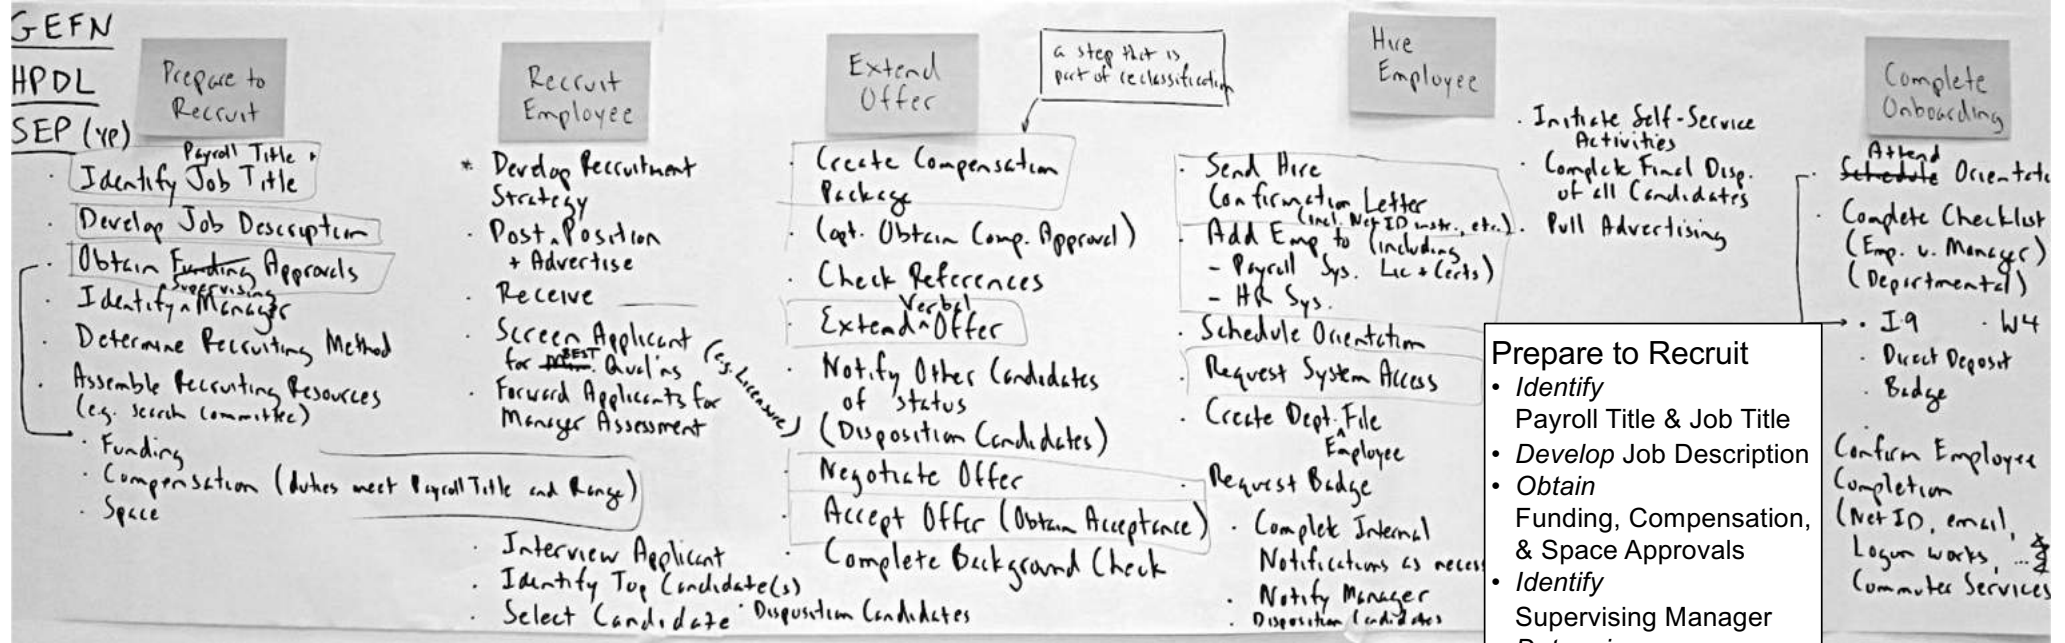 GEFN
HPDL
SEP (YP)
Prepare to
Recruit
Payroll Title +
· Identify Job Title
· Develop Job Description
· Obtain Funding Approvals
Supervising
· Identify ^ Manager
· Determine Recruiting Method
· Assemble Recruiting Resources
(e.g. search committee)
· Funding
· Compensation (duties meet Payroll Title and Range)
· Space
Recruit
Employee
* Develop Recruitment
Strategy
· Post Position
+ Advertise
· Receive
· Screen Applicant (e.g. Licensure)
BEST
for Min. Qual'ns
· Forward Applicants for
Manager Assessment
· Interview Applicant
· Identify Top Candidate(s)
· Select Candidate · Disposition Candidates
Extend
Offer
a step that is
part of reclassification
· Create Compensation
Package
· (opt. Obtain Comp. Approval)
· Check References
Verbal
· Extend ^ Offer
· Notify Other Candidates
of status
(Disposition Candidates)
· Negotiate Offer
· Accept Offer (Obtain Acceptance)
· Complete Background Check
Hire
Employee
· Send Hire
Confirmation Letter
(incl. Net ID instr., etc.)
· Add Emp to (including
- Payroll Sys. Lic + Certs)
- HR Sys.
· Schedule Orientation
· Request System Access
· Create Dept. ^ File
Employee
· Request Badge
· Complete Internal
Notifications as neces
· Notify Manager
· Disposition Candidates
· Initiate Self-Service
Activities
· Complete Final Disp.
of all Candidates
· Pull Advertising
Complete
Onboarding
Attend
· Schedule Orientatio
· Complete Checklist
(Emp. v. Manager)
(Departmental)
· I9 · W4
· Direct Deposit
· Badge
Confirm Employee
Completion
(Net ID, email,
Logon works, ...
Commuter Services
Prepare to Recruit
• Identify
Payroll Title & Job Title
• Develop Job Description
• Obtain
Funding, Compensation,
& Space Approvals
• Identify
Supervising Manager